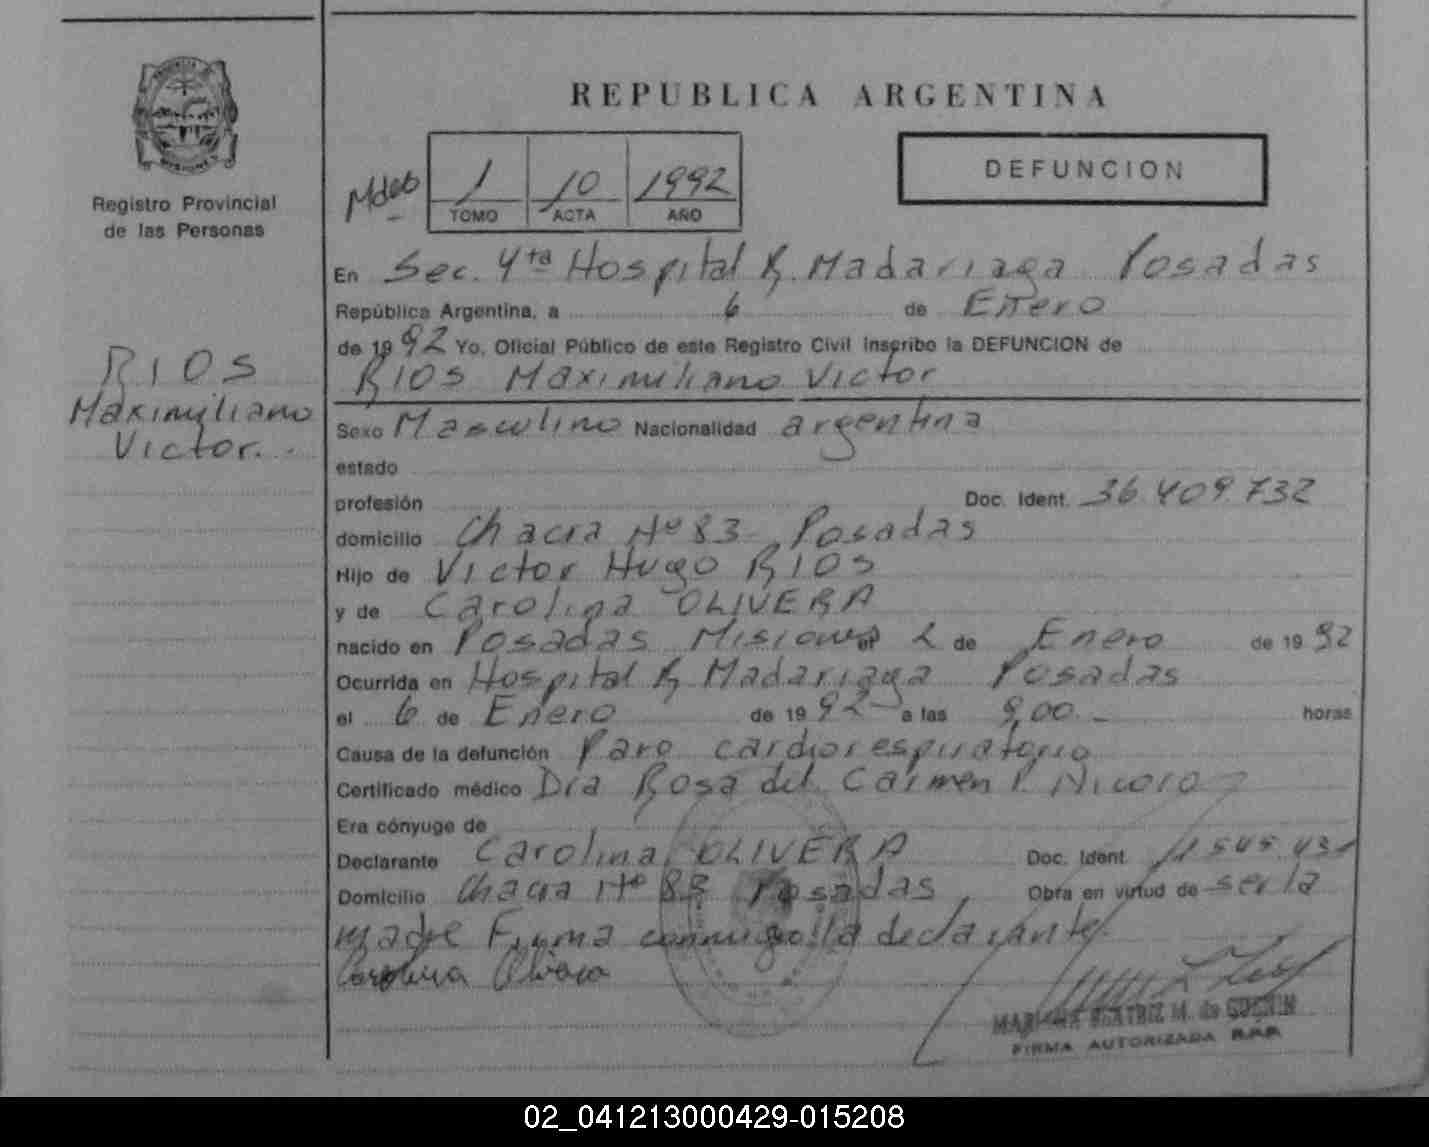 REPUBLICA ARGENTINA
Registro Provincial
de las Personas
1 10 1992
TOMO ACTA AÑO
DEFUNCION
En Sec. 4ta Hospital R. Madariaga Posadas
República Argentina, a 6 de Enero
de 1992 Yo, Oficial Público de este Registro Civil inscribo la DEFUNCION de
RIOS Maximiliano Victor
RIOS
Maximiliano
Victor.
Sexo Masculino Nacionalidad argentina
estado
profesión Doc. Ident. 36.409.732
domicilio Chacra Nº 83 Posadas
Hijo de Victor Hugo RIOS
y de Carolina OLIVERA
nacido en Posadas Misiones el 2 de Enero de 1992
Ocurrida en Hospital R. Madariaga Posadas
el 6 de Enero de 1992 a las 9,00 horas
Causa de la defunción Paro cardiorespiratorio
Certificado médico Dra Rosa del Carmen P.
Era cónyuge de
Declarante Carolina OLIVERA Doc. Ident.
Domicilio Chacra Nº 83 Posadas Obra en virtud de ser la
madre Firma conmigo la declarante
Carolina Olivera
BEATRIZ M. de
FIRMA AUTORIZADA R.P.P.
02_041213000429-015208